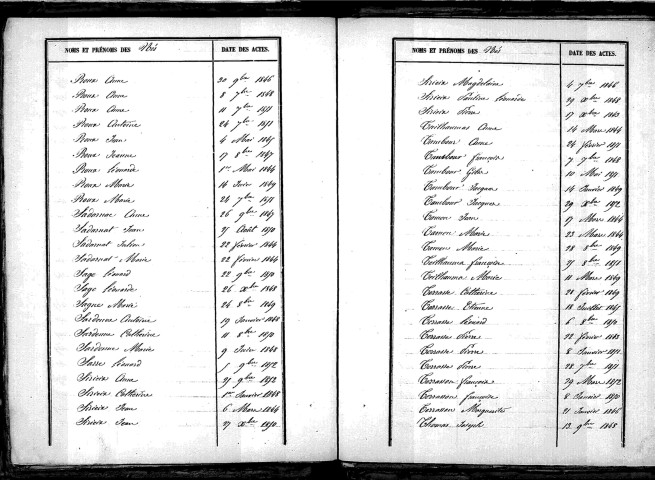 NOMS ET PRÉNOMS DES Nés DATE DES ACTES.
Roux Anne 20 9bre 1846
Roux Anne 8 7bre 1868
Roux Anne 11 7bre 1871
Roux Antoine 24 7bre 1871
Roux Jean 4 Mai 1865
Roux Jeanne 17 8bre 1867
Roux Léonard 1er Mai 1864
Roux Marie 14 1869
Roux Marie 24 7bre 1871
Sadarnac Anne 26 9bre 1867
Sadarnat Jean 21 Août 1870
Sadarnat Julien 22 février 1864
Sadarnat Marie 22 février 1864
Sage Léonard 22 9bre 1870
Sage Léonarde 26 Xbre 1868
Sagne Marie 24 8bre 1869
Sardenne Antoine 19 Janvier 1868
Sardenne Catherine 11 8bre 1870
Sardenne Marie 9 1868
Sarre Léonard 1 9bre 1872
Sirieix Anne 27 9bre 1872
Sirieix Catherine 1er Janvier 1868
Sirieix Jean 6 Mars 1864
Sirieix Jean 27 Xbre 1870
NOMS ET PRÉNOMS DES Nés DATE DES ACTES.
Sirieix Magdelaine 4 7bre 1866
Sirieix Pauline Léonarde 29 Xbre 1868
Sirieix Pierre 17 Xbre 1863
Teilhaumas Anna 14 Mars 1864
Tambour Anne 24 février 1871
Tambour françoise 7 7bre 1868
Tambour 10 Mai 1871
Tambour Jacques 14 Janvier 1869
Tambour Jacques 29 Xbre 1872
Tamon Jean 17 Mars 1864
Tamon Marie 23 Mars 1864
Tamon Marie 28 8bre 1869
Teilhauma françoise 21 8bre 1871
Teilhauma Marie 11 Mars 1869
Terrasse Catherine 28 février 1869
Terrasse Etienne 18 Juillet 1865
Terrasse Léonard 6 8bre 1870
Terrasse Pierre 22 février 1863
Terrasse Pierre 8 Janvier 1871
Terrasse Pierre 28 7bre 1871
Terrasson françois 29 Mars 1872
Terrasson françoise 8 Janvier 1870
Terrasson Marguerite 21 Janvier 1866
Thomas Joseph 13 9bre 1868